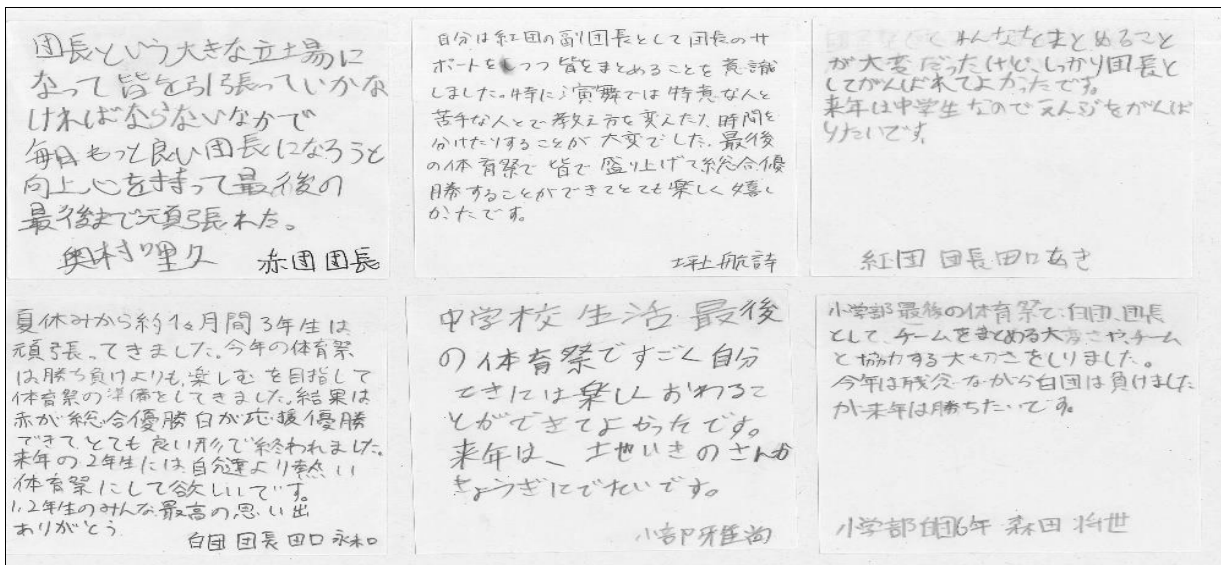 団長という大きな立場に
なって皆を引っ張っていかな
ければならないなかで
毎日もっと良い団長になろうと
向上心を持って最後の
最後まで頑張れた。
奥村 理久 赤団団長
自分は紅団の副団長として団長のサ
ポートをしつつ皆をまとめることを意識
しました。特に演舞では得意な人と
苦手な人とで教え方を変えたり、時間を
分けたりすることが大変でした。最後
の体育祭で皆で盛り上げて総合優
勝することができてとても楽しく嬉し
かったです。
航詩
みんなをまとめること
が大変だったけど、しっかり団長と
してがんばれてよかったです。
来年は中学生なのでえんぶをがんば
りたいです。
紅団 団長 田口あき
夏休みから約1ヶ月間3年生は
頑張ってきました。今年の体育祭
は勝ち負けよりも、楽しむを目指して
体育祭の準備をしてきました。結果は
赤が総合優勝白が応援優勝
できてとても良い形で終われました。
来年の2年生には自分達より熱い
体育祭にして欲しいです。
1、2年生のみんな最高の思い出
ありがとう
白団 団長 田口 永和
中学校生活最後
の体育祭ですごく自分
てきには楽しくおわるこ
とができてよかったです。
来年は、土地いきのさんか
きょうぎにでたいです。
小部 雅
小学部最後の体育祭で、白団、団長
として、チームをまとめる大変さや、チーム
と協力する大切さをしりました。
今年は残念ながら白団は負けました
が来年は勝ちたいです。
小学部白団6年 森田 将世